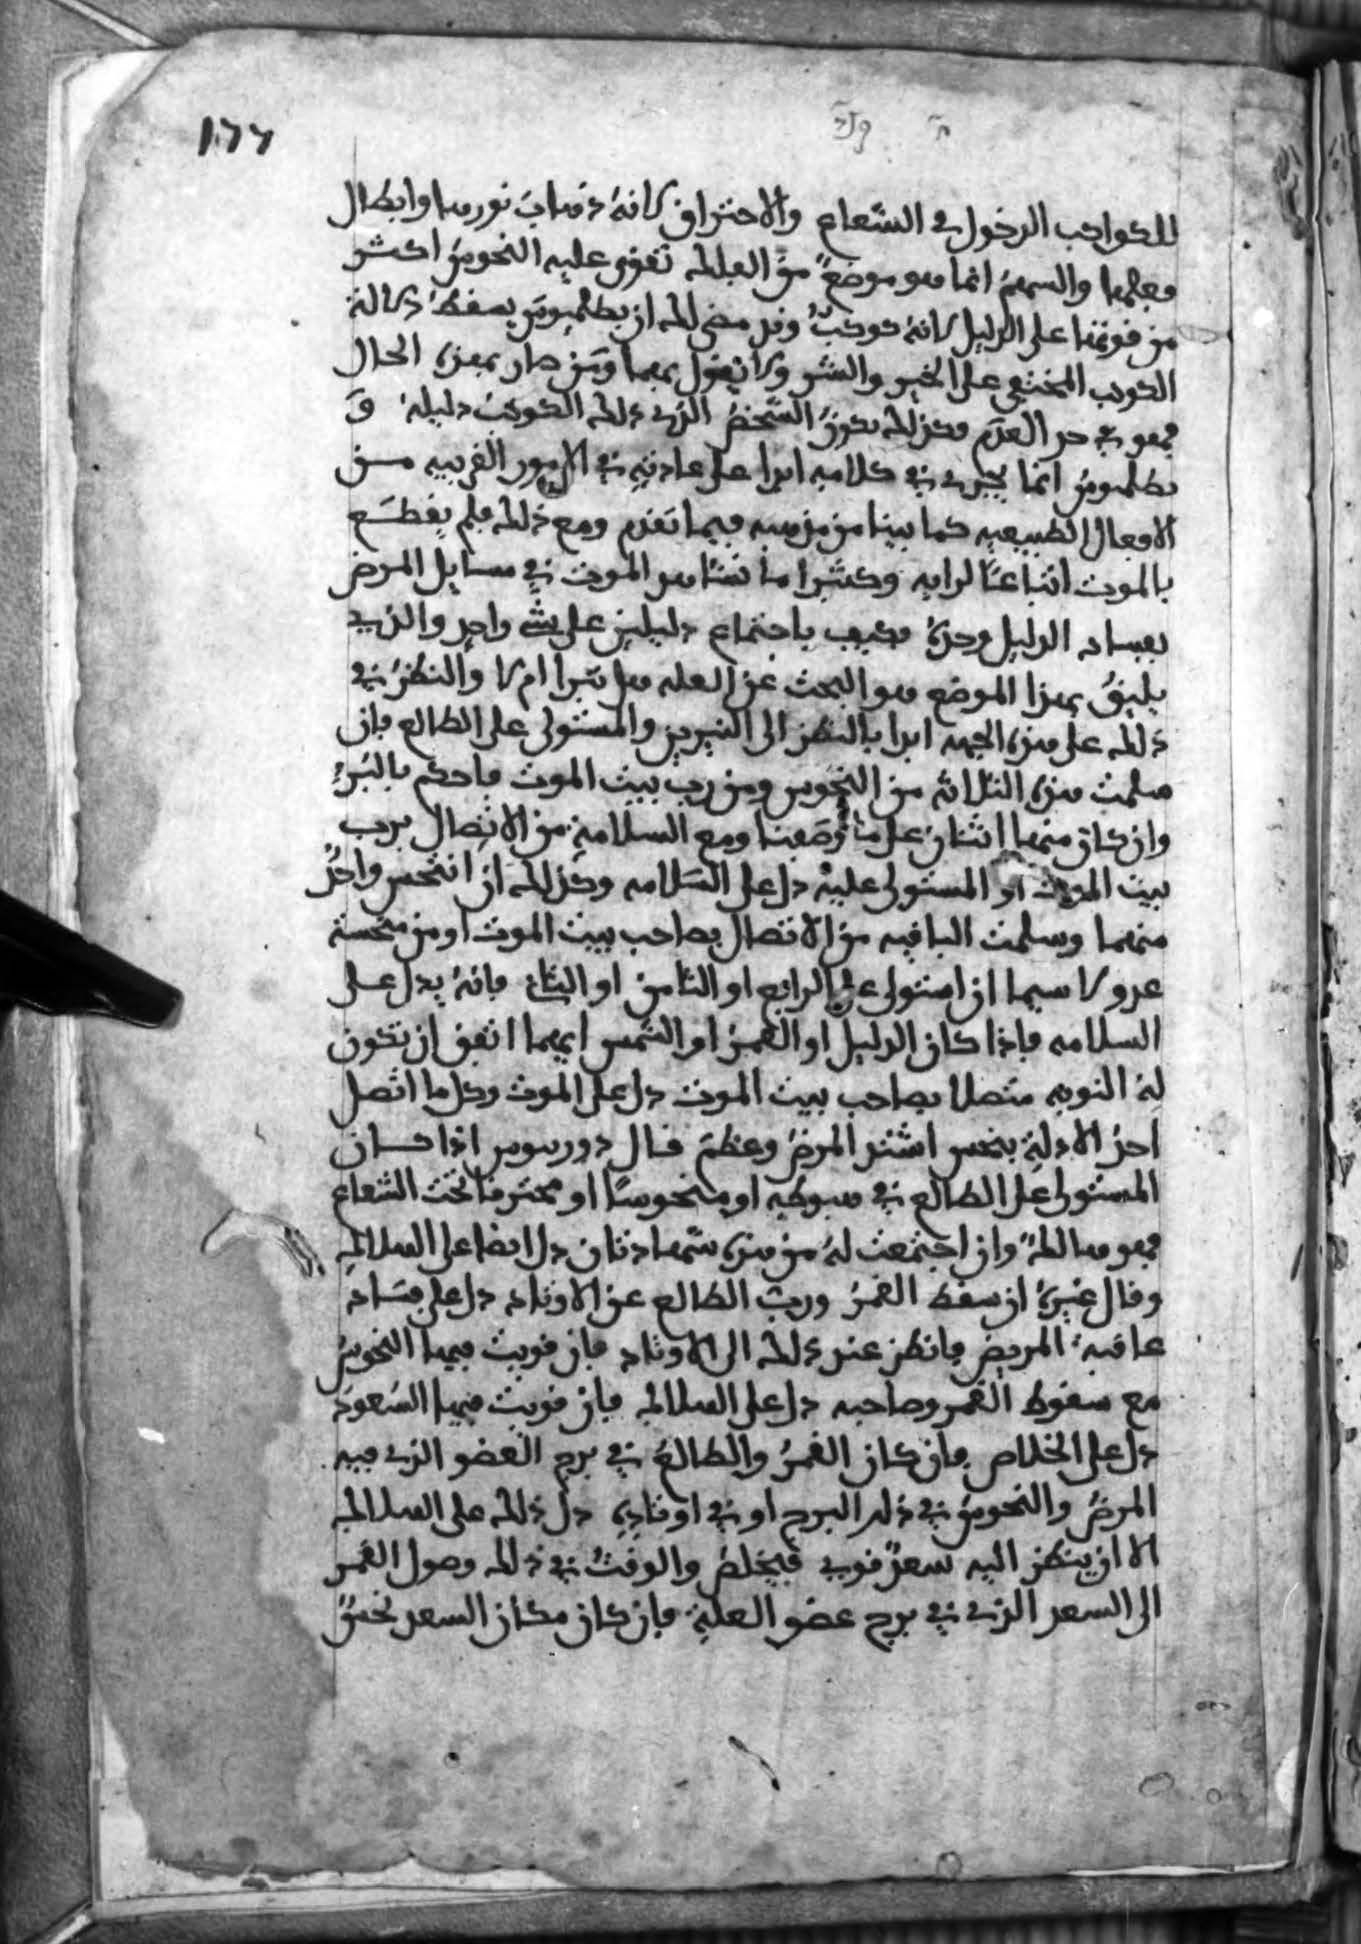 ١٦٦
للكواكب الدخول في الشعاع والاحتراق لانه ذهاب نورها وابطال
فعلها والسهم انما هو موضع من الفلك تقوى عليه النحوس اكثر
من قوتها على الدليل لانه كوكب وقد مضى لك ان بطلميوس يسقط دلالة
الكوكب المختفي على الخير والشر ولا يقول بهما ومن صار بهذه الحال
فهو في حد العدم فكذلك يكون الشخص الذي ذلك الكوكب دليله و
بطلميوس انما يجري في كلامه ابدا على عادته في الامور القريبه من
الافعال الطبيعيه كما بينا من مذهبه فيما تقدم ومع ذلك فلم يقطع
بالموت اتباعا لرايه وكثيرا ما نشاهد الموت في مسايل المرض
بفساد الدليل وحده فكيف باجتماع دليلين على شي واحد والذي
يليق بهذا الموضع هو البحث عن العله هل تبرا ام لا والنظر في
ذلك على هذه الجهه ابدا بالنظر الى النيرين والمستولي على الطالع فان
سلمت هذه الثلاثه من النحوس ومن رب بيت الموت فاحكم بالبرء
وان كان منها اثنان على ما وصفنا ومع السلامة من الاتصال برب
بيت الموت او المستولي عليه دل على السلامه وكذلك ان انتحس واحد
منهما وسلمت الباقيه من الاتصال بصاحب بيت الموت او من منحسة
عدو لا سيما ان استولى على الرابع او الثامن او فانه يدل على
السلامه فاذا كان الدليل او القمر او الشمس ايهما اتفق ان تكون
له النوبه متصلا بصاحب بيت الموت دل على الموت وكل ما اتصل
احد الادلة بنحس اشتد المرض وعظم قال دوروسوس اذا كان
المستولي على الطالع في هبوطه او منحوسا او محترقا تحت الشعاع
فهو هالك وان اجتمعت له من هذه شهادتان دل ايضا على الهلاك
وقال غيره ان سقط القمر ورب الطالع عن الاوتاد دل على فساد
عاقبه المريض فانظر عند ذلك الى الاوتاد فان قويت فيها النحوس
مع سقوط القمر وصاحبه دل على الهلاك فان قويت فيها السعود
دل على الخلاص فان كان القمر والطالع في برج العضو الذي فيه
المرض والنحوس في ذلك البرج او في اوتاده دل ذلك على الهلاك
الا ان ينظر اليه سعد قوي فيخلص والوقت في ذلك وصول القمر
الى السعد الذي في برج عضو العلة فان كان مكان السعد نحس